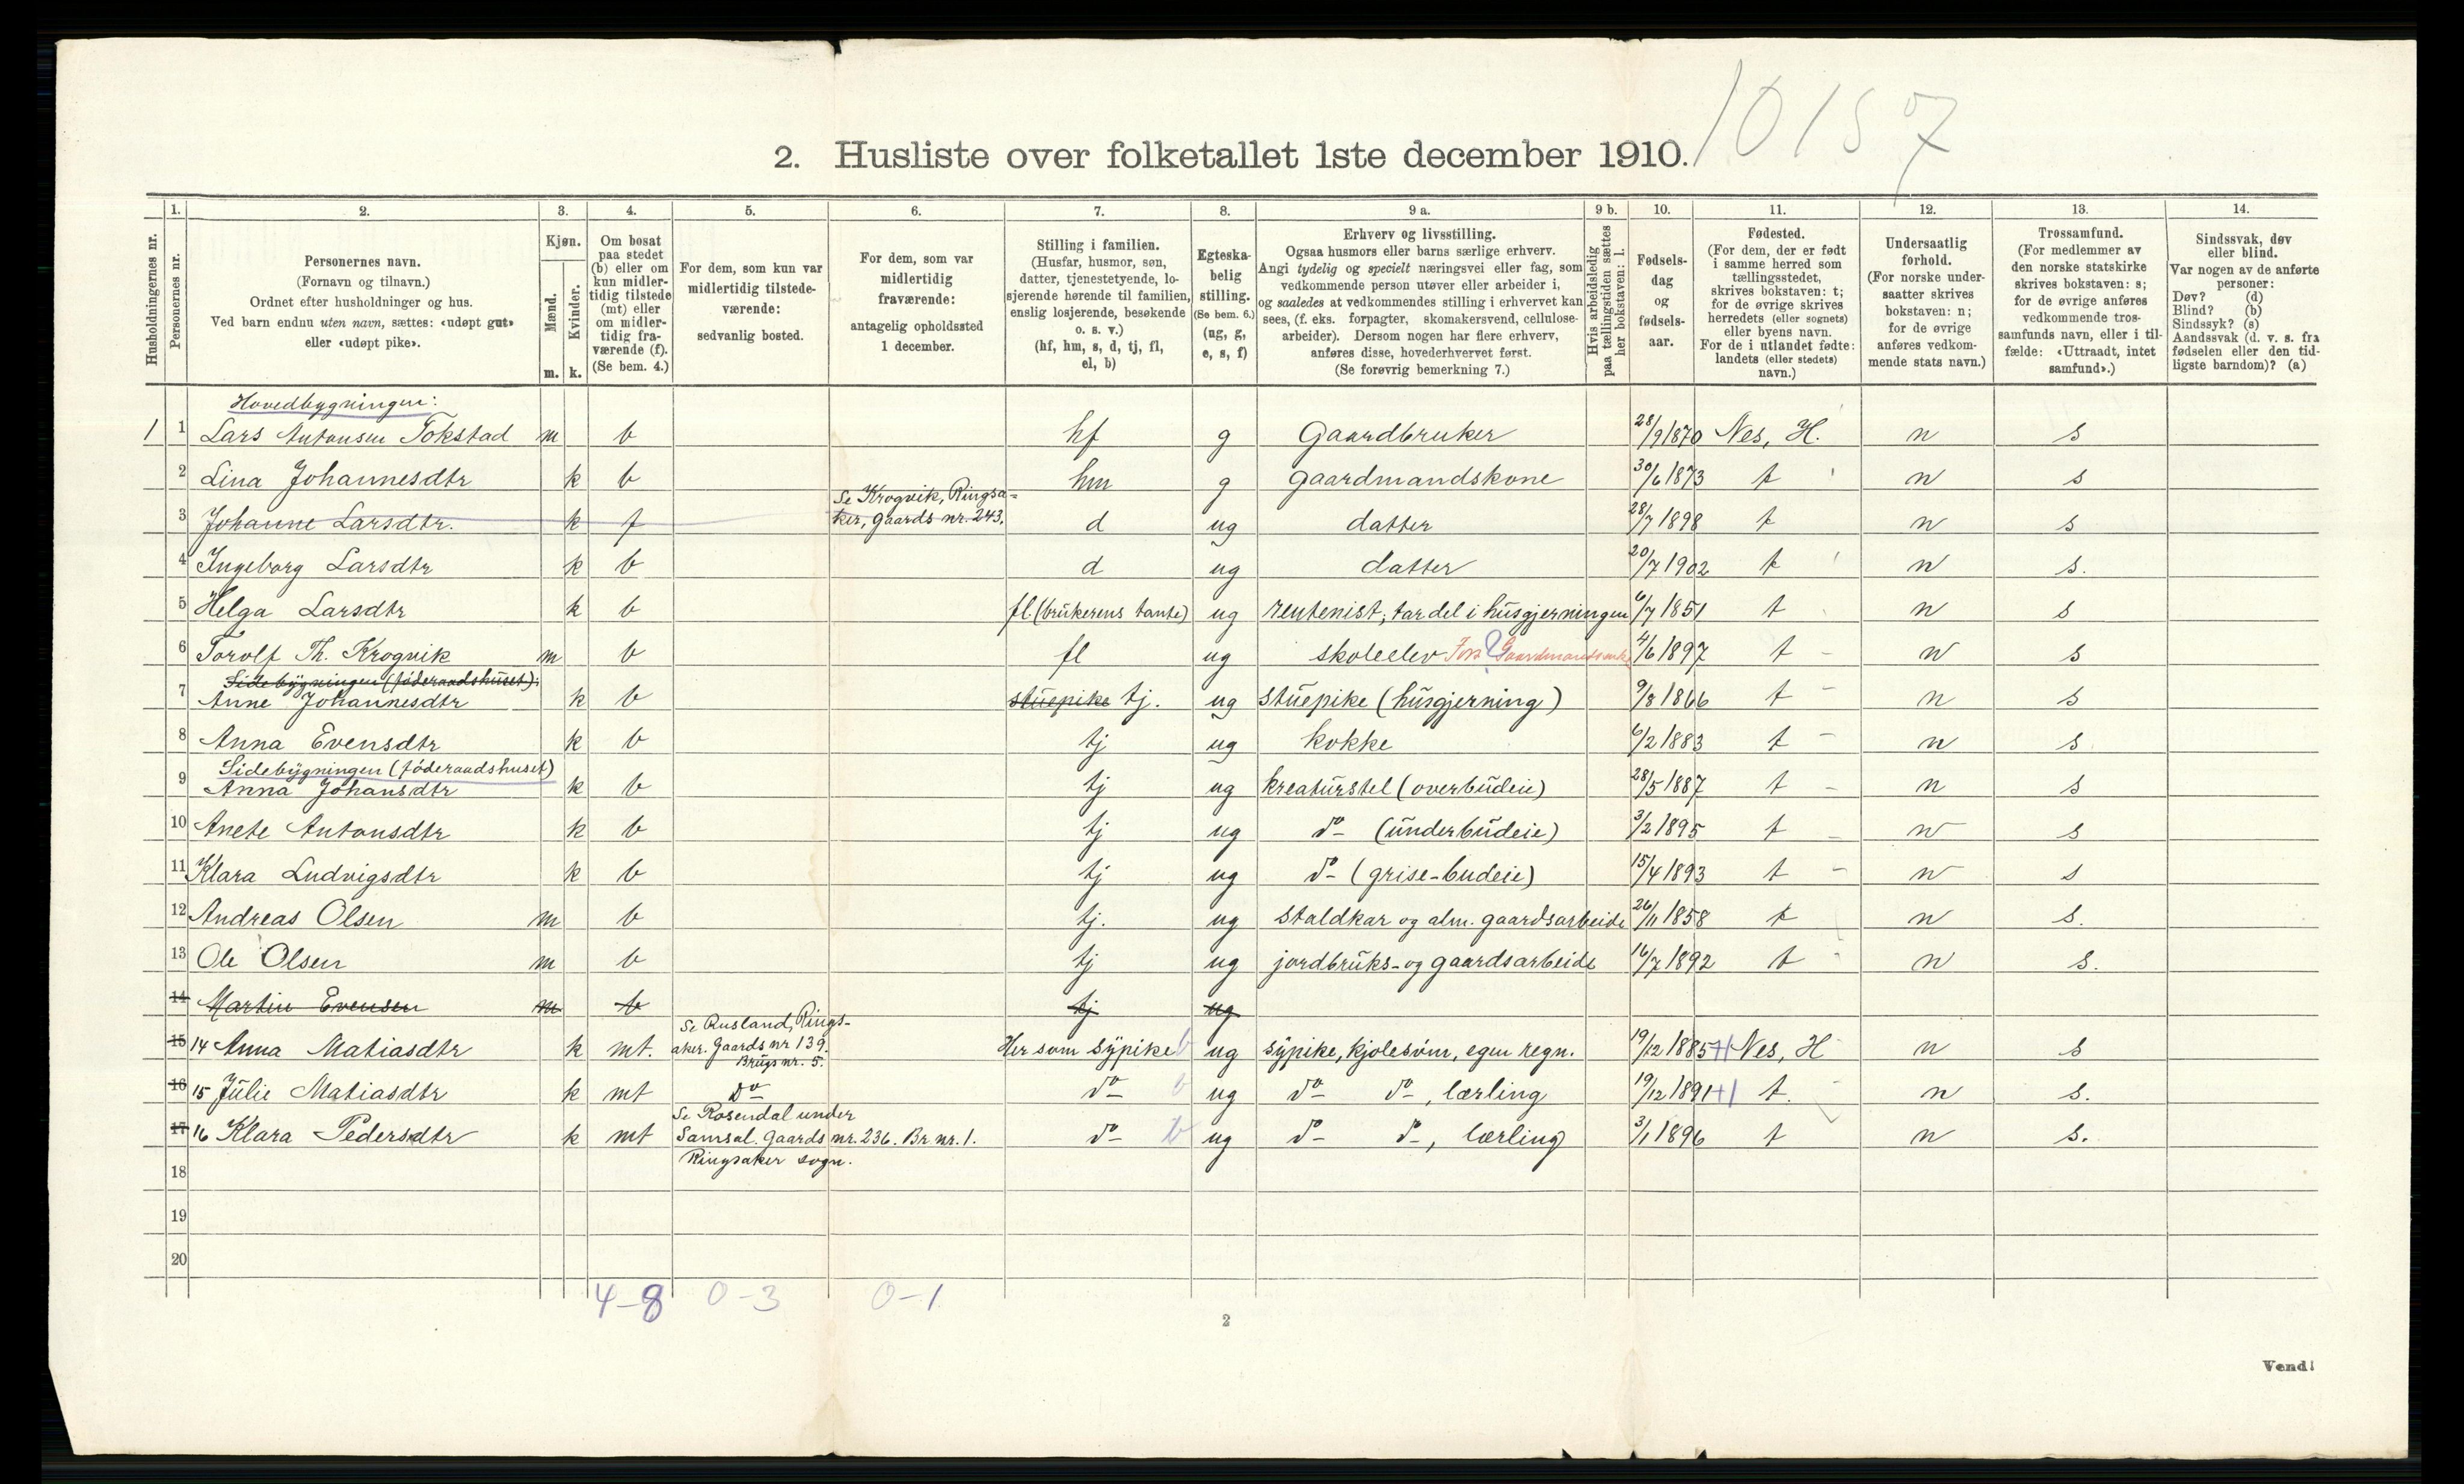 10157
2. Husliste over folketallet 1ste december 1910.
Husholdningernes nr.
1. Personernes nr.
2. Personernes navn.
(Fornavn og tilnavn.)
Ordnet efter husholdninger og hus.
Ved barn endnu uten navn, sættes: «udøpt gut»
eller «udøpt pike».
3. Kjøn.
Mænd. m.
Kvinder. k.
4. Om bosat
paa stedet
(b) eller om
kun midler-
tidig tilstede
(mt) eller
om midler-
tidig fra-
værende (f).
(Se bem. 4.)
5. For dem, som kun var
midlertidig tilstede-
værende:
sedvanlig bosted.
6. For dem, som var
midlertidig
fraværende:
antagelig opholdssted
1 december.
7. Stilling i familien.
(Husfar, husmor, søn,
datter, tjenestetyende, lo-
sjerende hørende til familien,
enslig losjerende, besøkende
o. s. v.)
(hf, hm, s, d, tj, fl,
el, b)
8. Egteska-
belig
stilling.
(Se bem. 6.)
(ug, g,
e, s, f)
9 a. Erhverv og livsstilling.
Ogsaa husmors eller barns særlige erhverv.
Angi tydelig og specielt næringsvei eller fag, som
vedkommende person utøver eller arbeider i,
og saaledes at vedkommendes stilling i erhvervet kan
sees, (f. eks. forpagter, skomakersvend, cellulose-
arbeider). Dersom nogen har flere erhverv,
anføres disse, hovederhvervet først.
(Se forøvrig bemerkning 7.)
9 b. Hvis arbeidsledig
paa tællingstiden sættes
her bokstaven: l.
10. Fødsels-
dag
og
fødsels-
aar.
11. Fødested.
(For dem, der er født
i samme herred som
tællingsstedet,
skrives bokstaven: t;
for de øvrige skrives
herredets (eller sognets)
eller byens navn.
For de i utlandet fødte:
landets (eller stedets)
navn.)
12. Undersaatlig
forhold.
(For norske under-
saatter skrives
bokstaven: n;
for de øvrige
anføres vedkom-
mende stats navn.)
13. Trossamfund.
(For medlemmer av
den norske statskirke
skrives bokstaven: s;
for de øvrige anføres
vedkommende tros-
samfunds navn, eller i til-
fælde: «Uttraadt, intet
samfund».)
14. Sindssvak, døv
eller blind.
Var nogen av de anførte
personer:
Døv? (d)
Blind? (b)
Sindssyk? (s)
Aandssvak (d. v. s. fra
fødselen eller den tid-
ligste barndom)? (a)
Hovedbygningen:
1 1 Lars Antonsen Tokstad m b hf g Gaardbruker 28/9 1870 Nes, H. n s
2 Lina Johannesdtr k b hm g gaardmandskone 30/6 1873 t n s
Se Krogvik, Ringsa-
3 Johanne Larsdtr. k f ker, gaards nr. 243. d ug datter 28/7 1898 t n s
4 Ingeborg Larsdtr k b d ug datter 20/7 1902 t n s.
5 Helga Larsdtr k b fl. (brukerens tante) ug rentenist; tar del i husgjerningen 6/7 1851 t n s
6 Torolf Th. Krogvik m b fl ug skoleelev ? 4/6 1897 t n s
Sidebygningen (föderaadshuset):
7 Anne Johannesdtr k b stuepike tj. ug stuepike (husgjerning) 9/8 1866 t n s
8 Anna Evensdtr k b tj ug kokke 6/2 1883 t n s
Sidebygningen (föderaadshuset)
9 Anna Johansdtr k b tj ug kreaturstel (overbudeie) 28/5 1887 t n s
10 Anete Antonsdtr k b tj ug do (underbudeie) 3/2 1895 t n s
11 Klara Ludvigsdtr k b tj ug do (grise-budeie) 15/4 1893 t n s
12 Andreas Olsen m b tj. ug staldkar og alm. gaardsarbeide 26/11 1858 t n s.
13 Ole Olsen m b tj ug jordbruks- og gaardsarbeide 16/7 1892 t n s.
14 Martin Evensen m b tj ug
Se Rusland, Rings-
15 14 Anna Matiasdtr k mt. aker. Gaards nr 139. Her som sypike b ug sypike, kjolesöm, egen regn. 19/12 1885 Nes, H n s
Brugs nr. 5.
16 15 Julie Matiasdtr k mt Do do b ug do do, lærling 19/12 1891 t. n s.
Se Rosendal under
17 16 Klara Pedersdtr k mt Samsal. Gaards nr. 236. Br. nr. 1. do b ug do do, lærling 3/1 1896 t n s.
Ringsaker sogn.
18
19
20
4-8 0-3 0-1
2
Vend!